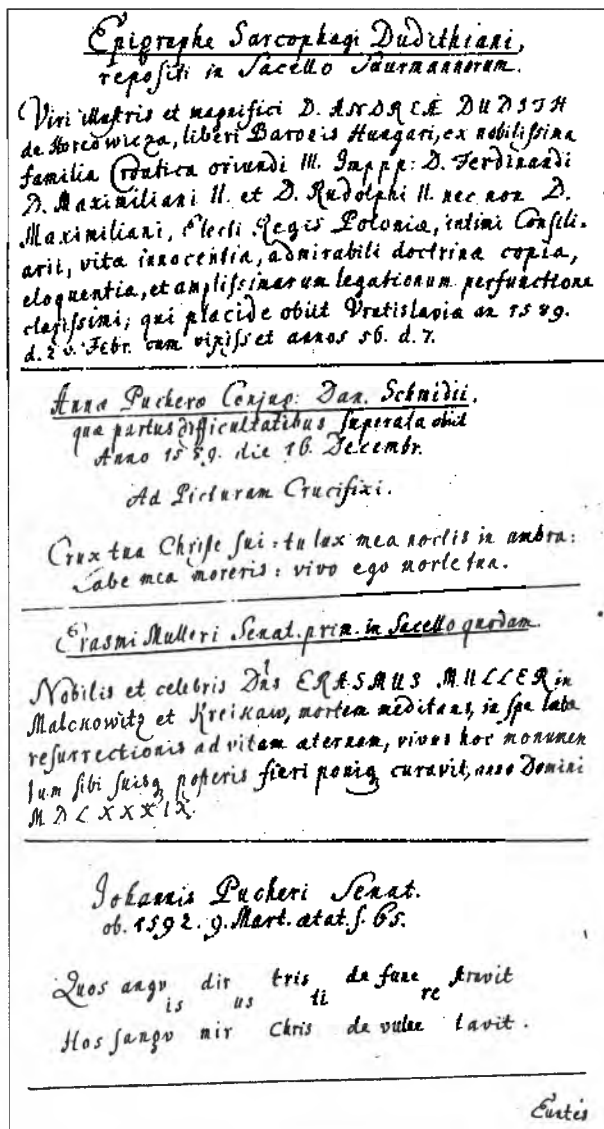 Epigraphe Sarcophagi Dudithiani,
repositi in Sacello Saurmannorum.
Viri illustris et magnifici D. ANDREÆ DUDITH
de Horedwicza, liberi Baronis Hungari, ex nobilissina
familia Croatica oriundi III. Imppp: D. Ferdinandi
D. Maximiliani II. et D. Rudolphi II. nec non D.
Maximiliani, Electi Regis Poloniæ, intimi Consili-
arii, vitæ innocentia, admirabili doctrina copia,
eloquentia, et amplissimarum legationum perfunctione
clarissimi; qui placide obiit Vratislaviæ an 1589.
d. 2 Febr. cum vixisset annos 56. d. 7.
Annæ Pucheræ Conjug: Dan. Schmidii,
quæ partus difficultatibus superata obiit
Anno 1589. die 16. Decembr.
Ad Picturam Crucifixi.
Crux tua Christe sui: tu lux mea mortis in umbra:
Labe mea moreris: vivo ego morte tua.
Erasmi Mulleri Senat. prim. in Sacello quodam.
Nobilis et celebris Dns ERASMUS MULLER in
Malckowitz et Kreikaw, mortem meditans, in spe lætæ
resurrectionis ad vitam æternam, vivus hoc monumen
tum sibi suisq posteris fieri poniq curavit, anno Domini
M D L X X X I X.
Johannis Pucheri Senat.
ob. 1592. 9. Mart. ætat. s. 65.
Quos angv dir tris de fune stravit
is us ti re
Hos sangv mir Chris de vulne lavit.
Curtis